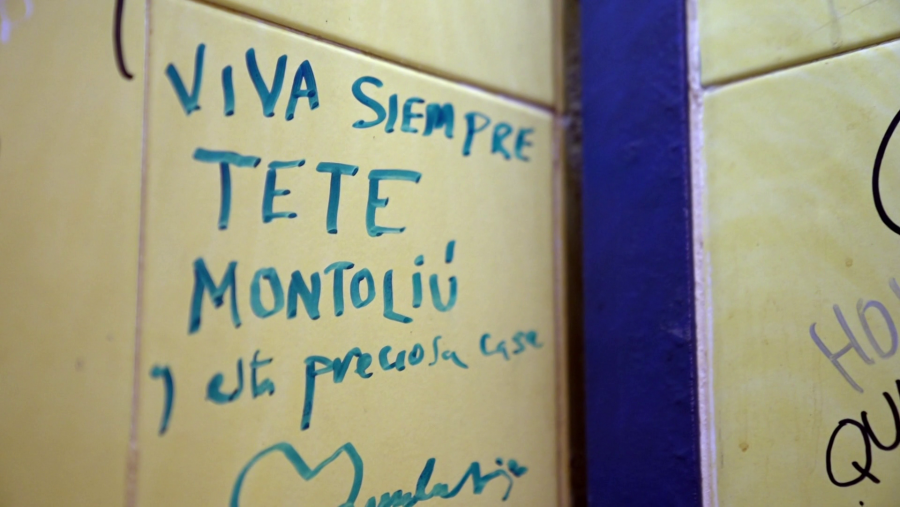 VIVA SIEMPRE
TETE
MONTOLIÚ
y esta preciosa casa
HO
QU